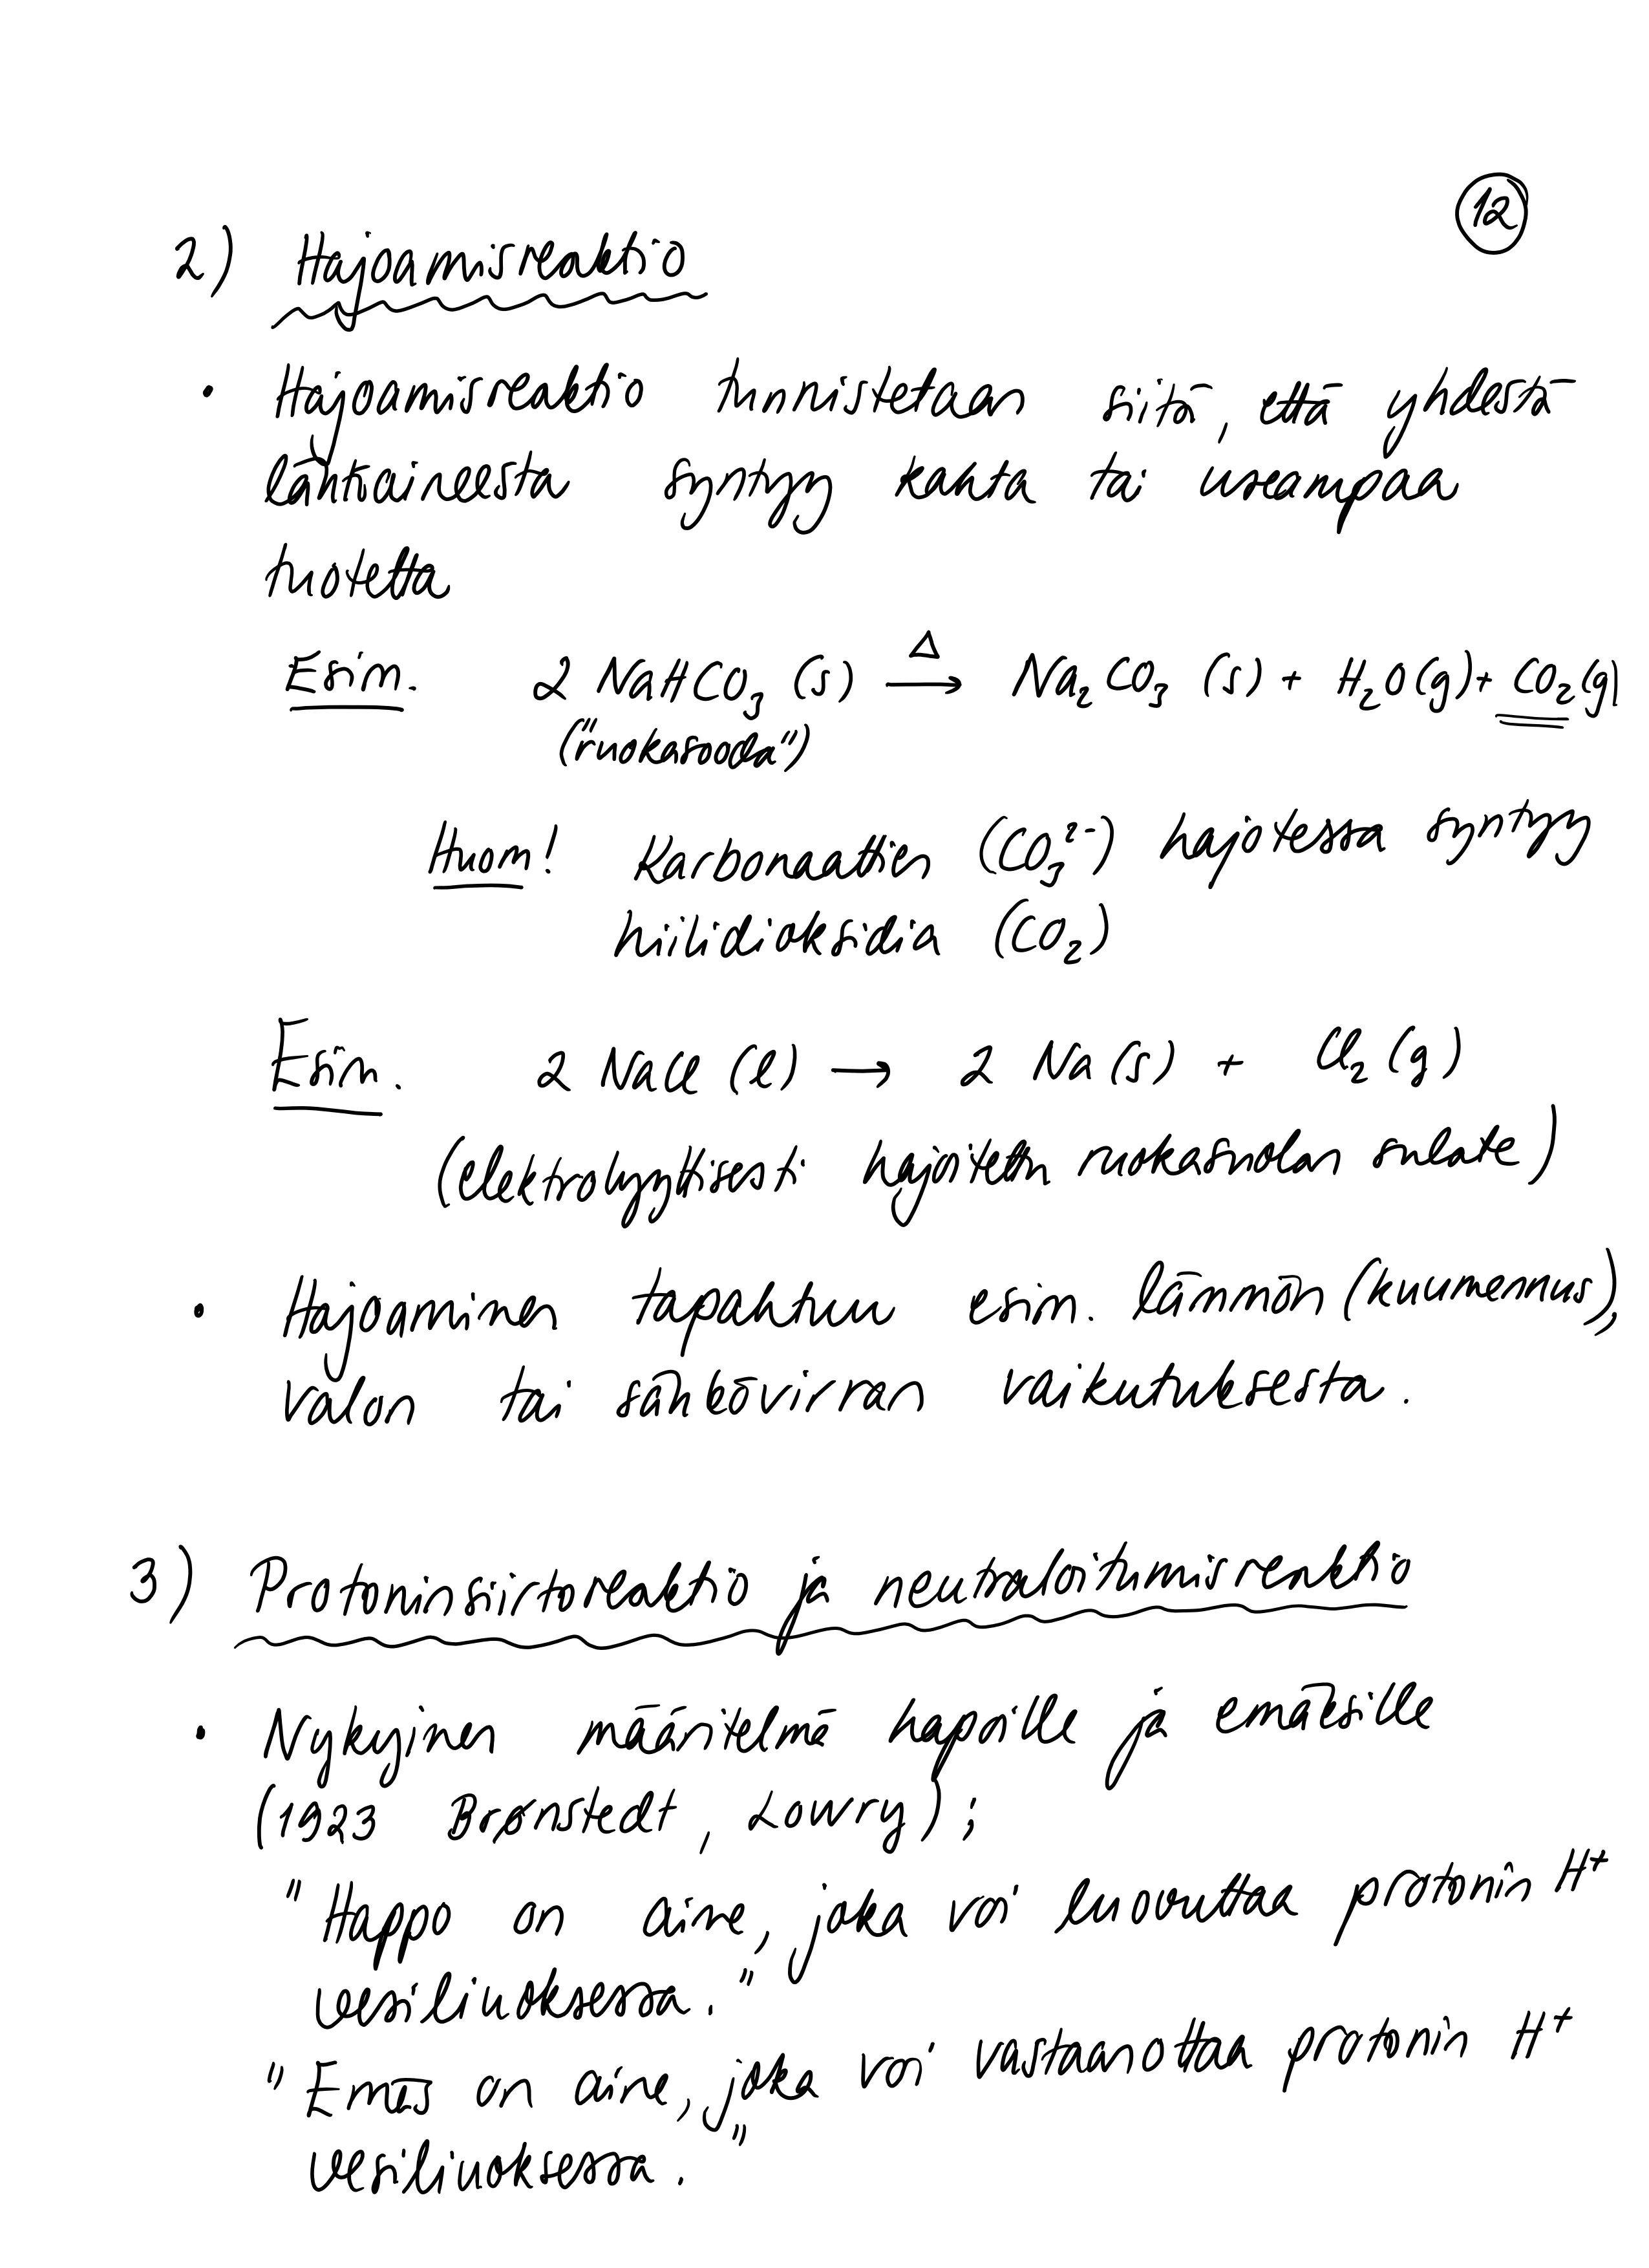 12
2) Hajoamisreaktio
• Hajoamisreaktio tunnistetaan siitä, että yhdestä
lähtöaineesta syntyy kahta tai useampaa
tuotetta
Esim. 2 NaHCO₃ (s) →Δ Na₂CO₃ (s) + H₂O(g) + CO₂(g)
("ruokasooda")
Huom! Karbonaattien (CO₃²⁻) hajotessa syntyy
hiilidioksidia (CO₂)
Esim. 2 NaCl (l) → 2 Na (s) + Cl₂ (g)
(elektrolyyttisesti hajoitettu ruokasuolan sulate)
• Hajoaminen tapahtuu esim. lämmön (kuumennus),
valon tai sähkövirran vaikutuksesta.
3) Protoninsiirtoreaktio ja neutraloitumisreaktio
• Nykyinen määritelmä hapoille ja emäksille
(1923 Brønstedt, Lowry);
"Happo on aine, joka voi luovuttaa protonin H⁺
vesiliuoksessa."
"Emäs on aine, joka voi vastaanottaa protonin H⁺
vesiliuoksessa."